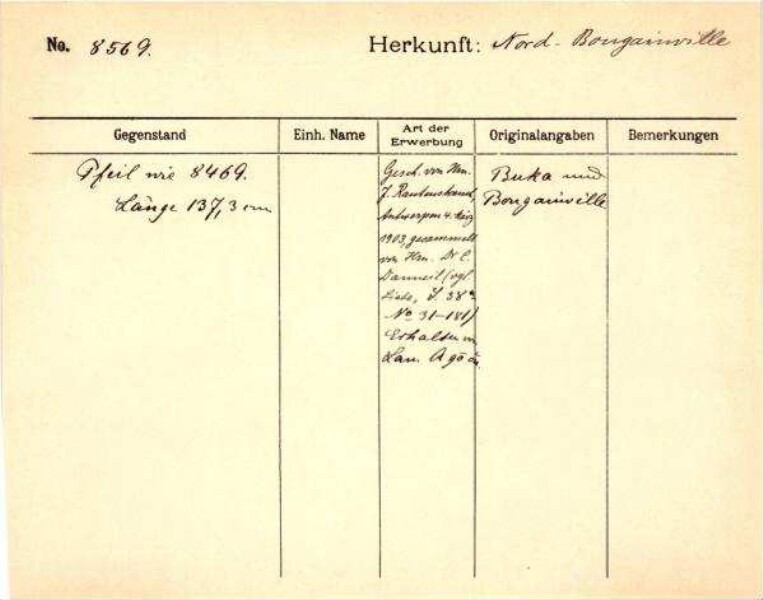 No. 8569. Herkunft: Nord-Bougainville
Gegenstand Einh. Name Art der Erwerbung Originalangaben Bemerkungen
Pfeil wie 8469.
Länge 137,3 cm
Gesch. von Hrn.
J. Rautenstrauch,
Antwerpen 4. März
1903, gesammelt
von Hrn. Dr C.
Danneil (vgl.
Liste, S. 38
No 31–181)
Erhalten
Lam
Buka und
Bougainville